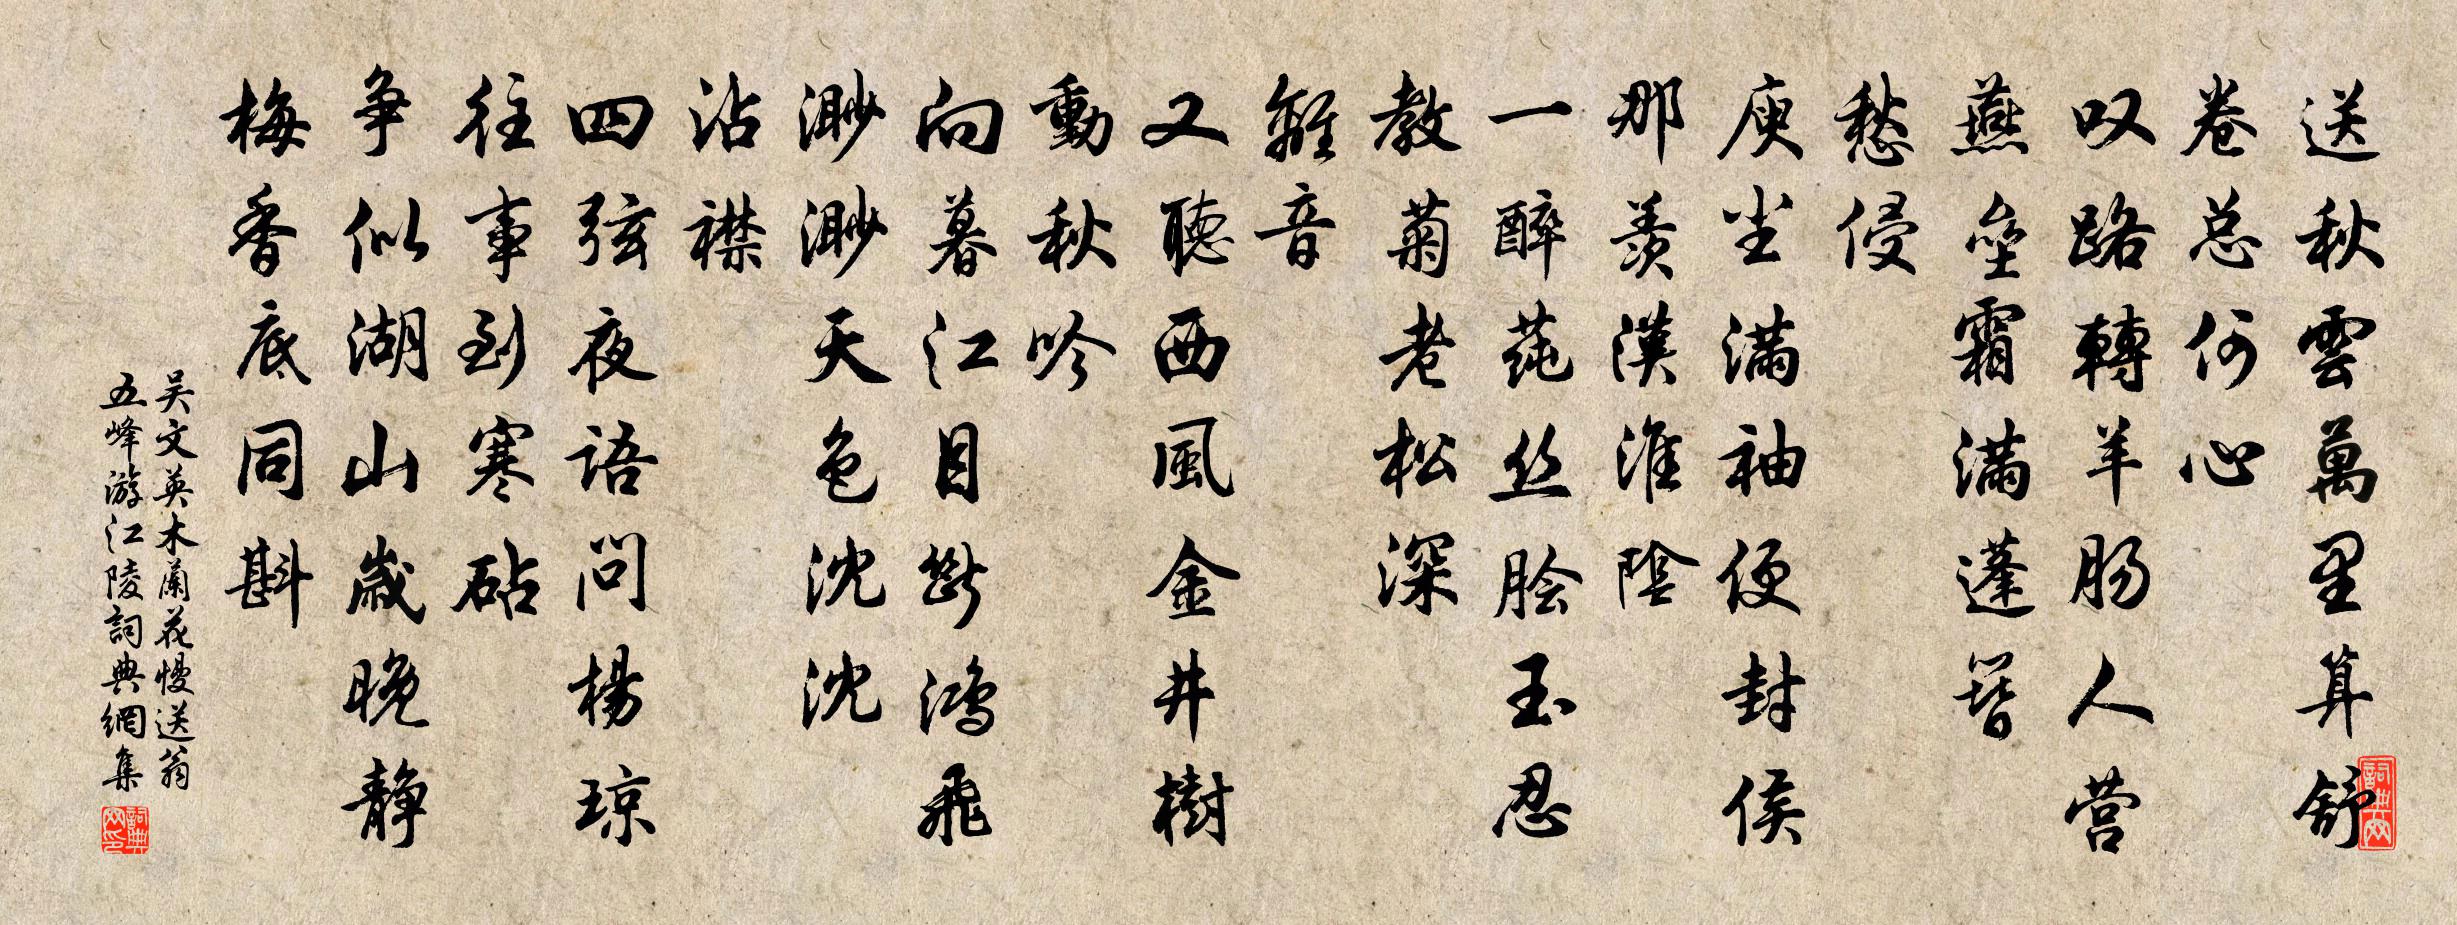 送秋雲萬里算舒
卷总何心
叹路轉羊肠人营
燕垒霜满蓬簪
愁侵
庾尘满袖便封侯
那羡漢淮陰
一醉莼丝脍玉忍
教菊老松深
離音
又聽西風金井樹
動秋吟
向暮江目斷鴻飛
渺渺天色沈沈
沾襟
四弦夜语问楊琼
往事到寒砧
争似湖山歲晚静
梅香底同斟
吴文英木蘭花慢送翁
五峰游江陵詞典網集
詞典网
詞典网印